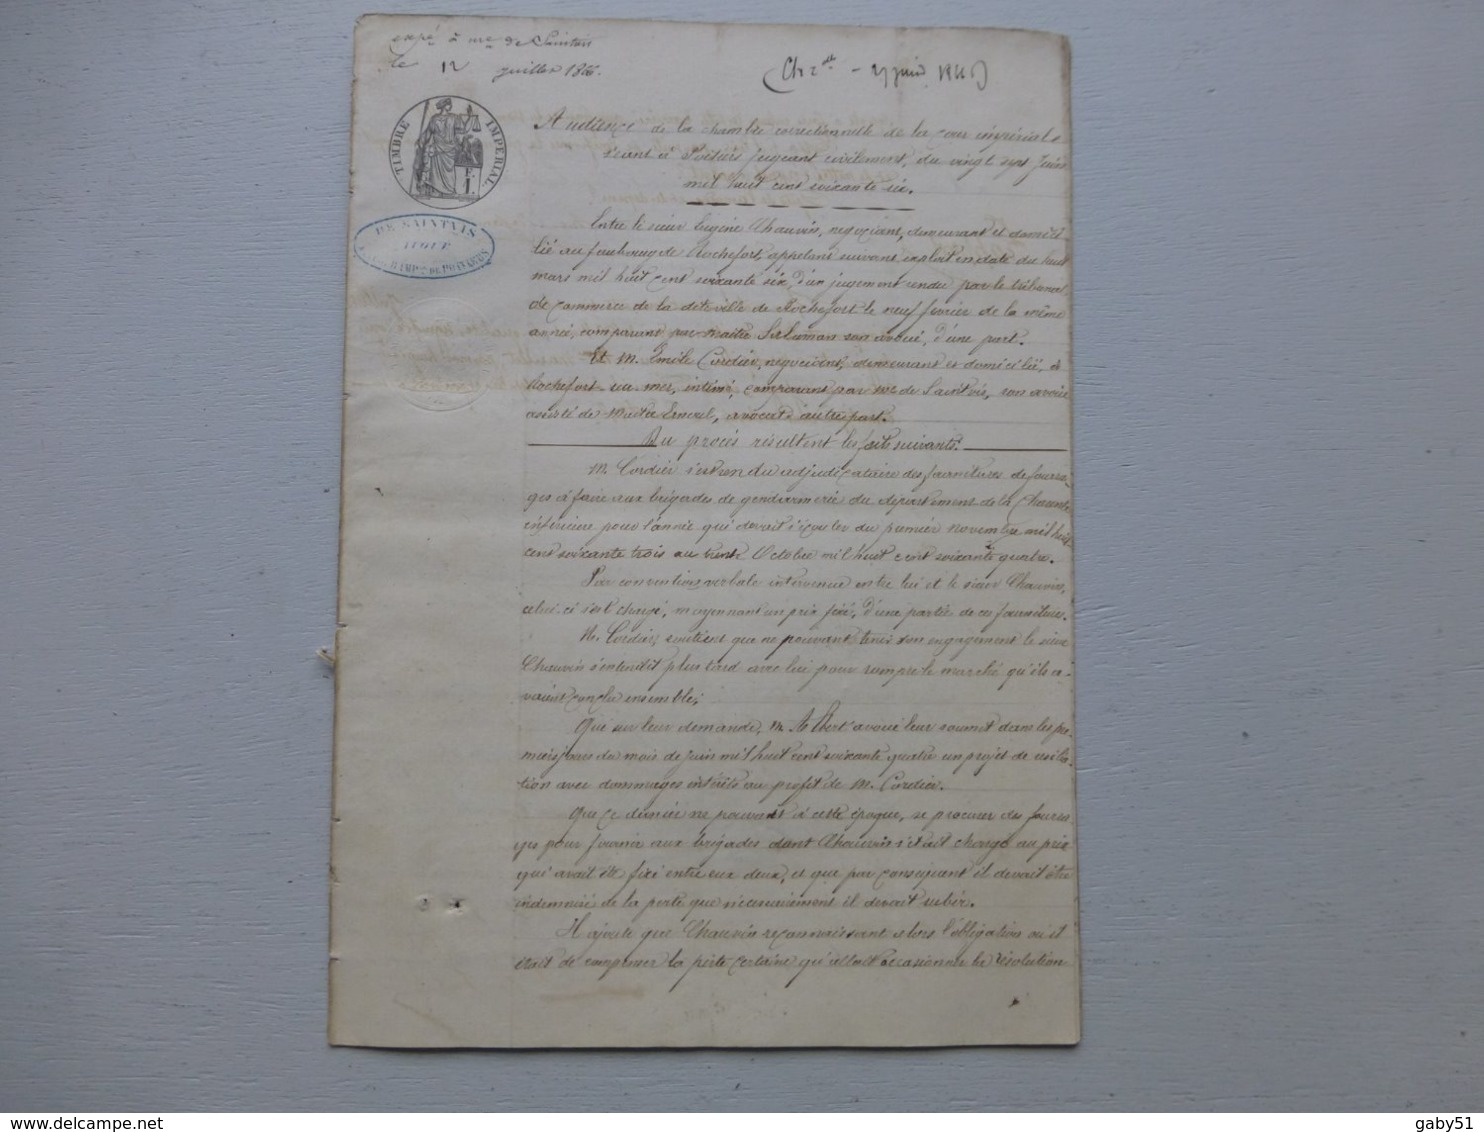 expé à me de Saintvis
le 12 juillet 1866.
(Ch. elle - 27 juin 1866)
TIMBRE IMPERIAL
F.
1.
DE SAINTVIS
AVOUÉ
DE POITIERS
Audience de la chambre correctionnelle de la cour impériale
séant à Poitiers jugeant civilement, du vingt sept Juin
mil huit cent soixante six.
Entre le sieur Eugène Chauvin, négociant, demeurant et domici-
lié au faubourg de Rochefort, appelant suivant exploit en date du huit
mars mil huit cent soixante six, d'un jugement rendu par le tribunal
de commerce de la dite ville de Rochefort le neuf février de la même
année, comparant par maître son avoué, d'une part.
Et M. Emile Cordier, négociant, demeurant et domicilié, à
Rochefort-sur-mer, intimé, comparant par me de Saintvis, son avoué
assisté de Maître Ernoul, avocat, d'autre part.
Du procès résultent les faits suivants.
M. Cordier s'est rendu adjudicataire des fournitures de fourra-
ges à faire aux brigades de gendarmerie du département de la Charente
inférieure pour l'année qui devait s'écouler du premier novembre mil huit
cent soixante trois au trente Octobre mil huit cent soixante quatre.
Par conventions verbales intervenue entre lui et le sieur Chauvin,
celui-ci s'est chargé, moyennant un prix fixé, d'une partie de ces fournitures.
M. Cordier, soutient que ne pouvant tenir son engagement le sieur
Chauvin s'entendit plus tard avec lui pour rompre le marché qu'ils a-
vaient conclu ensemble;
Que sur leur demande, M. Albert avoué leur soumit dans les pre-
miers jours du mois de juin mil huit cent soixante quatre un projet de résilia-
tion avec dommages intérêts au profit de M. Cordier.
Que ce dernier ne pouvant à cette époque, se procurer des fourra-
ges pour fournir aux brigades dont Chauvin s'était chargé au prix
qui avait été fixé entre eux deux, et que par conséquent il devait être
indemnisé de la perte que nécessairement il devait subir.
Il ajoute que Chauvin reconnaissant alors l'obligation où il
était de compenser la perte certaine qu'allait occasionner la résolution
delcampe.net
gaby51